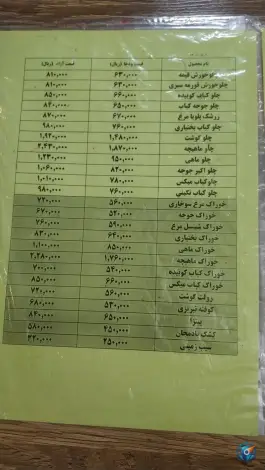 نام محصول قیمت یدها (ریال) قیمت آزاد (ریال)
چلوخورش قیمه ۶۳۰,۰۰۰ ۸۱۰,۰۰۰
چلوخورش قورمه سبزی ۶۳۰,۰۰۰ ۸۱۰,۰۰۰
چلو کباب کوبیده ۶۶۰,۰۰۰ ۸۵۰,۰۰۰
چلو جوجه کباب ۶۵۰,۰۰۰ ۸۴۰,۰۰۰
زرشک پلوبا مرغ ۶۷۰,۰۰۰ ۸۷۰,۰۰۰
چلو کباب بختیاری ۷۶۰,۰۰۰ ۹۸۰,۰۰۰
چلو گوشت ۱,۴۸۰,۰۰۰ ۱,۹۲۰,۰۰۰
چلو ماهیچه ۱,۸۷۰,۰۰۰ ۲,۴۳۰,۰۰۰
چلو ماهی ۹۵۰,۰۰۰ ۱,۲۳۰,۰۰۰
چلو اکبر جوجه ۸۲۰,۰۰۰ ۱,۰۶۰,۰۰۰
چلوکباب میکس ۷۸۰,۰۰۰ ۱,۰۱۰,۰۰۰
چلو کباب نگینی ۷۶۰,۰۰۰ ۹۸۰,۰۰۰
خوراک مرغ سوخاری ۵۶۰,۰۰۰ ۷۲۰,۰۰۰
خوراک جوجه ۵۲۰,۰۰۰ ۶۷۰,۰۰۰
خوراک شنیسل مرغ ۵۹۰,۰۰۰ ۷۶۰,۰۰۰
خوراک بختیاری ۶۴۰,۰۰۰ ۸۳۰,۰۰۰
خوراک ماهی ۸۵۰,۰۰۰ ۱,۱۰۰,۰۰۰
خوراک ماهیچه ۱,۷۶۰,۰۰۰ ۲,۲۸۰,۰۰۰
خوراک کباب کوبیده ۵۴۰,۰۰۰ ۷۰۰,۰۰۰
خوراک کباب میکس ۶۶۰,۰۰۰ ۸۵۰,۰۰۰
رولت گوشت ۵۶۰,۰۰۰ ۷۲۰,۰۰۰
کوفته تبریزی ۵۳۰,۰۰۰ ۶۸۰,۰۰۰
پیتزا ۶۵۰,۰۰۰ ۸۴۰,۰۰۰
کشک بادمجان ۴۵۰,۰۰۰ ۵۸۰,۰۰۰
سیب زمینی ۲۵۰,۰۰۰ ۳۲۰,۰۰۰